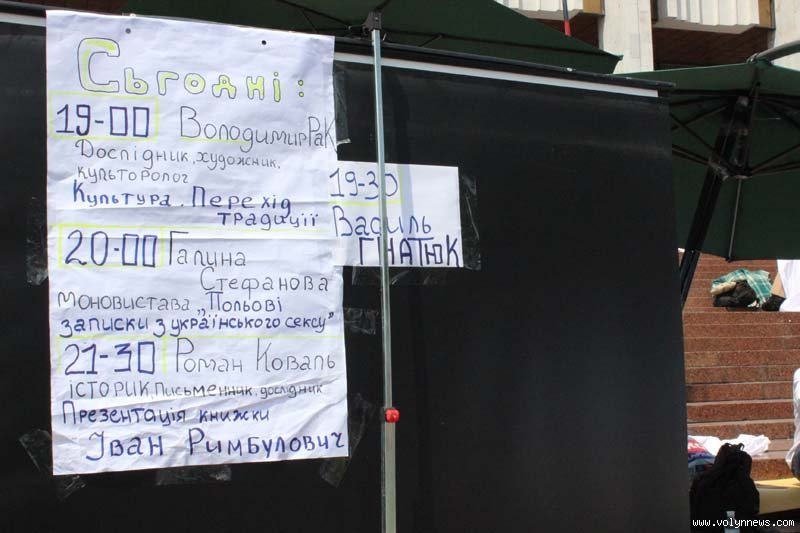 Сьогодні:
19-00 Володимир Рак
Дослідник, художник,
культоролог
Культура. Перехід
традиції
19-30
Василь
ГНАТЮК
20-00 Галина
Стефанова
моновистава „Польові
записки з українського сексу"
21-30 Роман Коваль
історик, письменник, дослідник
Презентація книжки
Іван Римбулович
www.volynnews.com